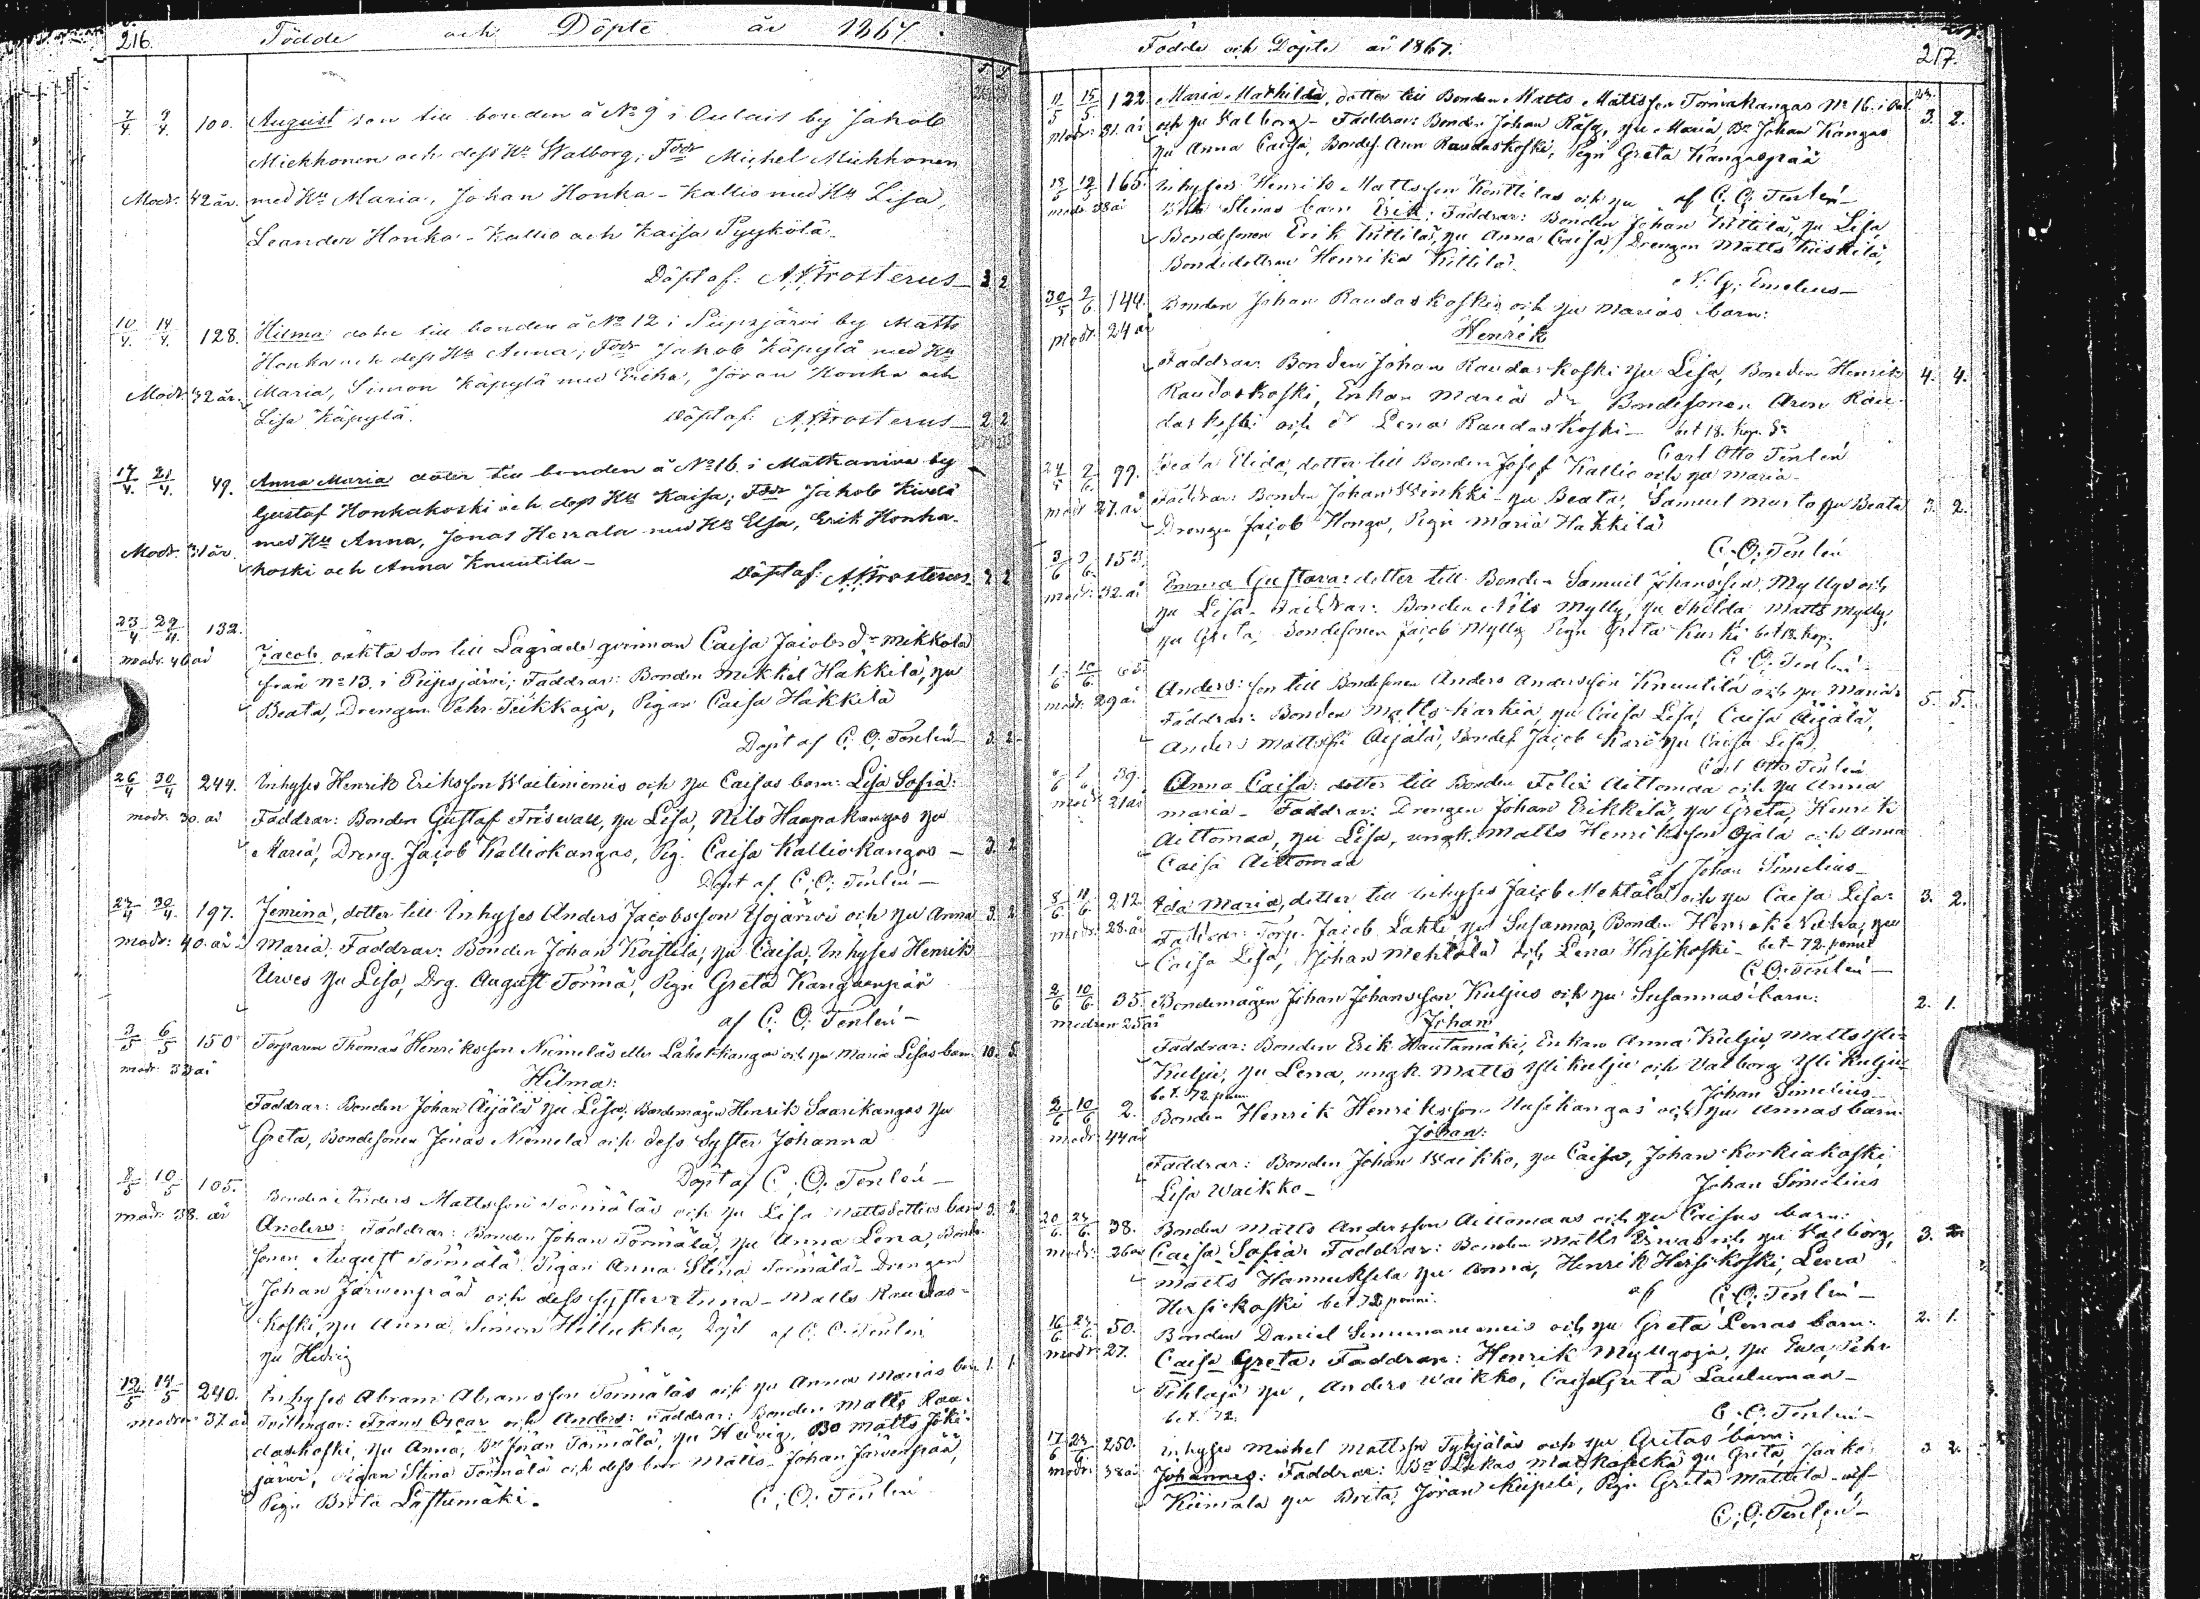 216. Födde och Döpte år 1867.
7/4 9/4 100. August son till bonden å No 9 i Oulais by Jakob
Michkonen och dess Hu Walborg; Fddr Michel Michkonen
Modr. 42 år. med Hu Maria, Johan Honka-Kallio med Hu Lisa,
Leander Honka-Kallio och Kaisa Pyykölä.
Döpt af: A. Frosterus 3 2
10/4 14/4 128. Hilma dotter till bonden å No 12 i Piipsjärvi by Matts
Honka och dess Hu Anna; Fddr Jakob Käpylä med Hu
Modr. 32 år. Maria, Simon Käpylä med Ericka, Jöran Honka och
Lisa Käpylä. Döpt af: A. Frosterus 2 2
17/4 21/4 49. Anna Maria dotter till bonden å No 16 i Matkaniva by
Gustaf Honkakoski och dess Hu Kaisa; Fddr Jakob Kivelä
med Hu Anna, Jonas Herrala med Hu Elsa, Erik Honka-
Modr. 31 år. koski och Anna Knuutila-
Döpt af: A. Frosterus 2 2
23/4 29/4 132.
modr. 40 år Jacob oäkta son till Lägrade qvinnan Caisa Jacobsdr Mikkola
från No 13. i Piipsjärvi; Faddrar: Bonden Mikkel Hakkila, hu
Beata, Drengen Pehr Tiikkaja, Pigan Caisa Hakkila
Döpt af C. O. Tenlén 3. 2
26/4 30/4 244. Inhyses Henrik Eriksson Waitiniemis och hu Caisas barn: Lisa Sofia:
modr. 30. år Faddrar: Bonden Gustaf Friswall, hu Lisa, Nils Haapakangas hu
Maria, Dreng. Jacob Kalliokangas, Pig. Caisa Kalliokangas - 3. 2
Döpt af C. O. Tenlén -
27/4 30/4 197. Jemina, dotter till Inhyses Anders Jacobsson Yojärvi och hu Anna 3. 2
modr: 40. år Maria. Faddrar: Bonden Johan Koistila, hu Caisa, Inhyses Henrik
Urves hu Lisa, Drg. August Törmä, Pign Greta Kangaanpää
af C. O. Tenlén -
3/5 6/5 150 Torparen Thomas Henriksson Niemeläs eller Lähetkangas och hu Maria Lisas barn 10. 5.
modr. 33 år Hilma:
Faddrar: Bonden Johan Äijälä hu Lisa, Bondemågen Henrik Saarikangas hu
Greta, Bondesonen Jonas Niemelä och dess syster Johanna
Döpt af C. O. Tenlén -
8/5 10/5 105. Bonden Anders Mattsson Törmäläs och hu Lisa Mattsdotters barn 3. 2
modr. 38. år Anders: Faddrar: Bonden Johan Törmälä, hu Anna Lena, Bonde-
sonen August Törmälä Pigan Anna Stina Törmälä- Drengen
Johan Järvenpää och dess syster Anna - Matts Raudas-
koski, hu Anna, Simon Hillukka, Döpt af C. O. Tenlén
hu Hedvig
12/5 14/5 240. Inhyses Abram Abramsson Törmäläs och hu Anna Marias barn 1. 1.
modren 37. år Tvillingar: Frans Oscar och Anders: Faddrar: Bonden Matts Rau-
daskoski, hu Anna, Bn Jöran Törmälä, hu Hedvig, Bo Matts Joki-
järvi, Pigan Stina Törmälä och dess bror Matts - Johan Järvenpää,
Pign Brita Löftumäki. C. O. Tenlén
Födde och Döpte år 1867. 217.
11/5 15/5 122. Maria Mathilda, dotter till Bonden Matts Mattsson Törmäkangas No 16. i Oul. 3. 2.
modr. 31. år och hu Valborg - Faddrar: Bonden Johan Räsy, hu Maria, Bn Johan Kangas
hu Anna Caisa, Bondes. Aron Raudaskoski, Pign Greta Kangaspää
12/5 165. Inhyses Henrik Mattsson Kenttilas och hu af C. O. Tenlén -
modr 38 år Brita Stinas barn Erik: Faddrar: Bonden Johan Kittilä, hu Lisa
Bondesonen Erik Kittilä, hu Anna Caisa, Drengen Matts Kiiskilä,
Bondedottren Henrika Kittilä.
N. G. Emeleus -
30/5 2/6 144. Bonden Johan Raudaskoskis och hu Marias barn:
modr. 24 år Henrik
Faddrar Bonden Johan Raudaskoski hu Lisa, Bonden Henrik 4. 4.
Raudaskoski, Enkan Maria dr, Bondesonen Aron Rau-
daskoski och dr Lena Raudaskoski - bet 18. kop. Sr
Carl Otto Tenlén
24/5 2/6 99. Beata Elida, dotter till Bonden Josef Kallio och hu Maria -
modr 27. år Faddrar: Bonden Johan Winkki - hu Beata, Samuel Marto hu Beata 3. 2.
Drengen Jacob Honga, Pign Maria Hakkila
C. O. Tenlén
modr. 32. år Emma Gustava: dotter till Bonden Samuel Johansson Myllys och
hu Lisa. Faddrar: Bonden Nils Mylly, hu Thilda, Matts Mylly,
hu Greta, Bondesonen Jacob Mylly Pign Greta Kurki bet 18. kop.
C. O. Tenlén
1/6 10/6 63. Anders: son till Bondesonen Anders Andersson Knuutila och hu Maria:
modr. 29 år. Faddrar: Bonden Matts Karkia, hu Caisa Lisa, Caisa Äijälä, 5. 5.
Anders Mattsson Äijälä, Bondes Jacob Karö hu Caisa Lisa
Carl Otto Tenlén
39. Anna Caisa: dotter till Bonden Felix Aittomaa och hu Anna
modr. 21 år Maria - Faddrar: Drengen Johan Erikkilä, hu Greta, Henrik
Aittomaa, hu Lisa, ungk. Matts Henriksson Ojala och Anna
Caisa Aittomaa af Johan Simelius
8/6 11/6 212. Ida Maria, dotter till Inhyses Jacob Mehtälä och hu Caisa Lisa: 3. 2.
modr. 28. år Faddrar: Torp. Jacob Lahti hu Susanna, Bonden Henrik Nahra, hu
Caisa Lisa, Johan Mehtälä och Lena Hirsikoski - bet 72. penni
C. O. Tenlén -
2/6 10/6 35. Bondemågen Johan Johansson Kuljus och hu Susannas barn: 2. 1.
modren 25 år Johan
Faddrar: Bonden Erik Hautamäki, Enkan Anna Kulju, Matts Yli-
Kulju, hu Lena, ungk. Matts Ylikulju och Valborg Ylikulju
bet. 72 penni Johan Simelius
2/6 10/6 2. Bonden Henrik Henriksson Uusikangas och hu Annas barn
modr. 44 år Johan:
Faddrar: Bonden Johan Waikko, hu Caisa, Johan Korkiakoski,
Lisa Waikko - Johan Simelius
20/6 23/6 38. Bonden Matts Andersson Aittomaas och hu Caisas barn:
modr. 26 år Caisa Sofia: Faddrar: Bonden Matts Urvas och hu Valborg, 3.
Matts Hannuksela hu Anna, Henrik Hirsikoski, Lena
Hirsikoski bet 72 penni. af C. O. Tenlén -
16/6 23/6 50. Bonden Daniel Simunaniemis och hu Greta Lenas barn: 2. 1.
modr. 27. Caisa Greta: Faddrar: Henrik Myllyoja, hu Ewa, Pehr
Pihlaja hu, Anders Waikko, Caisa Greta Laulumaa -
bet. 72. C. O. Tenlén -
17/6 23/6 250. Inhyses Michel Mattson Tyhjäläs och hu Gretas barn: 3 2.
modr. 38 år Johannes: Faddrar: Bn Lukas Matkaselkä hu Greta, Jaako
Kiimala hu Brita, Jöran Kiipeli, Pign Greta Mattila - af
C. O. Tenlén -